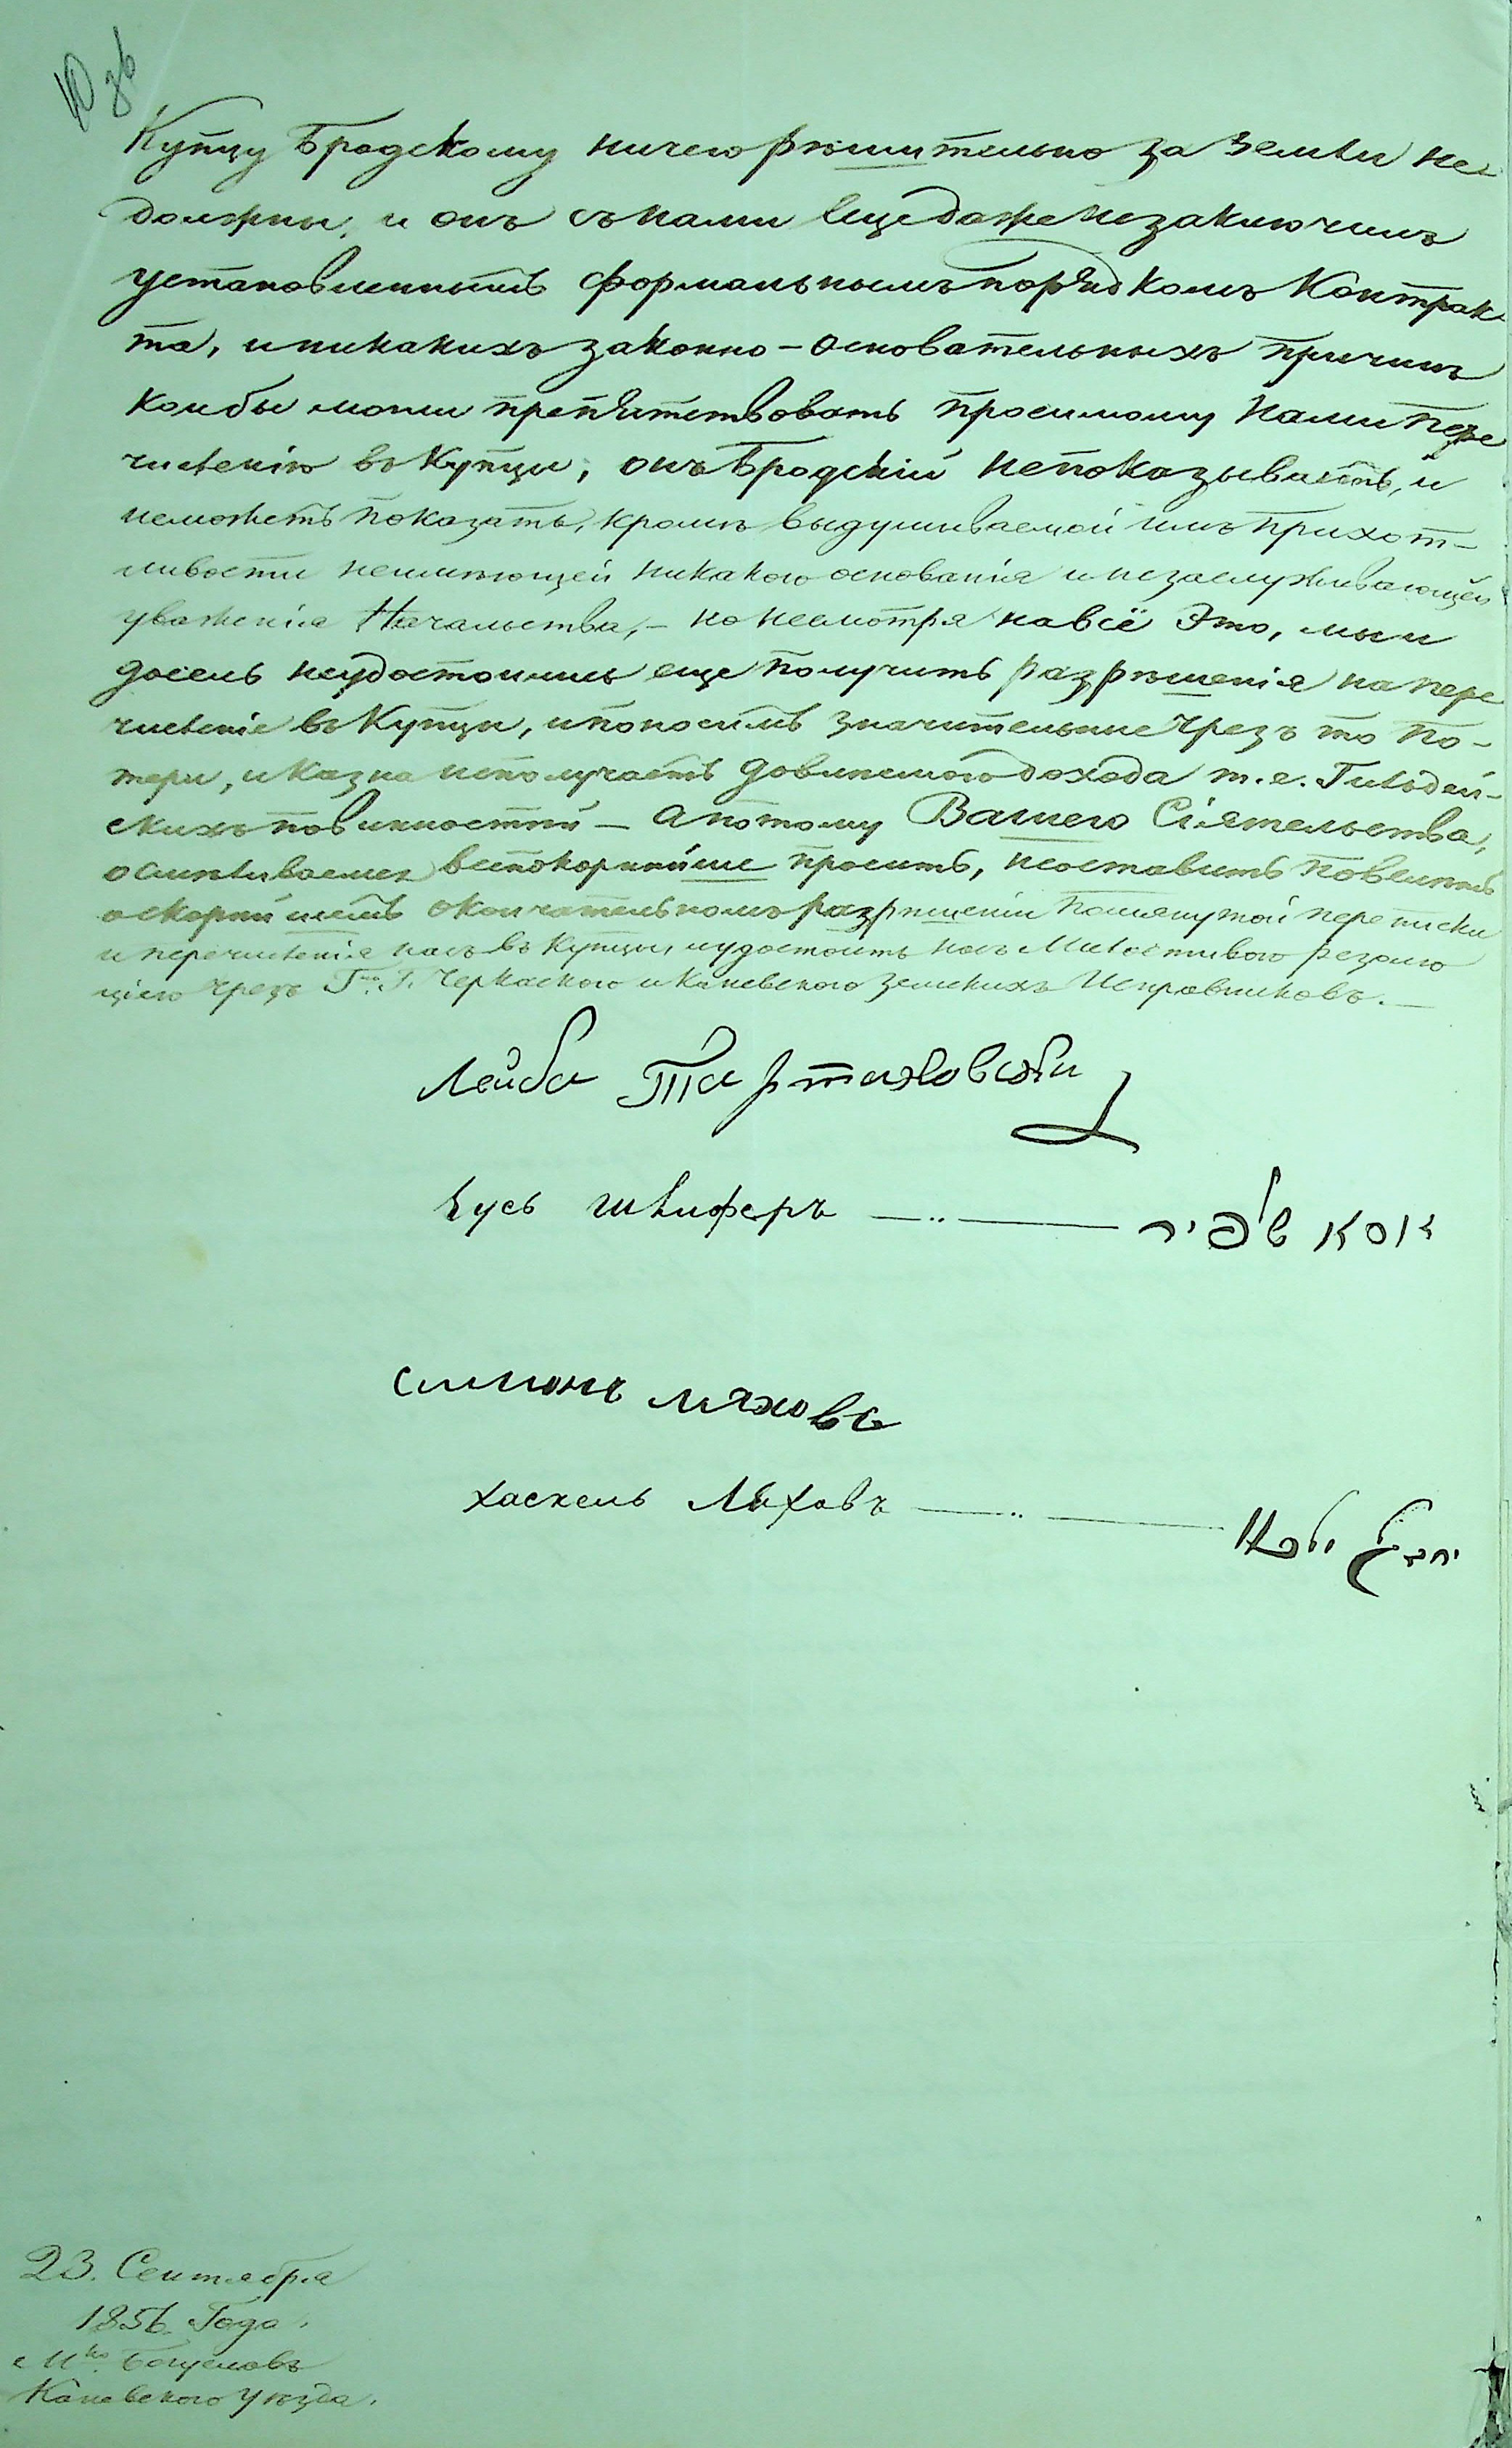 10 об
Купцу Бродскому ничего рѣшительно за земли не
должны, и онъ съ нами еще даже незаключилъ
установленнымъ формальнымъ порядкомъ Контрак-
та, и никакихъ законно-основательныхъ причинъ
кои бы могли препятствовать просимому нами пере
численію въ Купцы, онъ Бродскій непоказываетъ, и
неможетъ показать, кромѣ выдумываемой имъ прихот-
ливости неимѣющей никакого основанія и незаслуживающей
уваженія Начальства,- но несмотря на всё это, мы и
досель неудостоились еще получить разрѣшенія на пере
численіе въ Купцы, и поносимъ значительные чрезъ то по-
тери, и казна неполучаетъ довлѣемаго дохода т. е. Гильдей-
скихъ повинностей - а потому Вашего Сіятельства,
осмѣливаемся всепокорнѣйше просить, неоставить повелѣть
о скорѣйшемъ окончательномъ разрѣшеніи помянутой переписки
и перечисленія насъ въ Купцы, и удостоить насъ Милостивого резолю
ціею чрезъ Г.г. Черкаского и Каневского Земскихъ Исправниковъ.-
Лейба Тартаковскій
Зусь Шлиферъ זוסא שליפיר
Симонъ Ляховъ
Хаскель Ляховъ
23. Сентября
1856 Года.
М<sup>ко</sup> Богуславъ
Каневского Уѣзда.